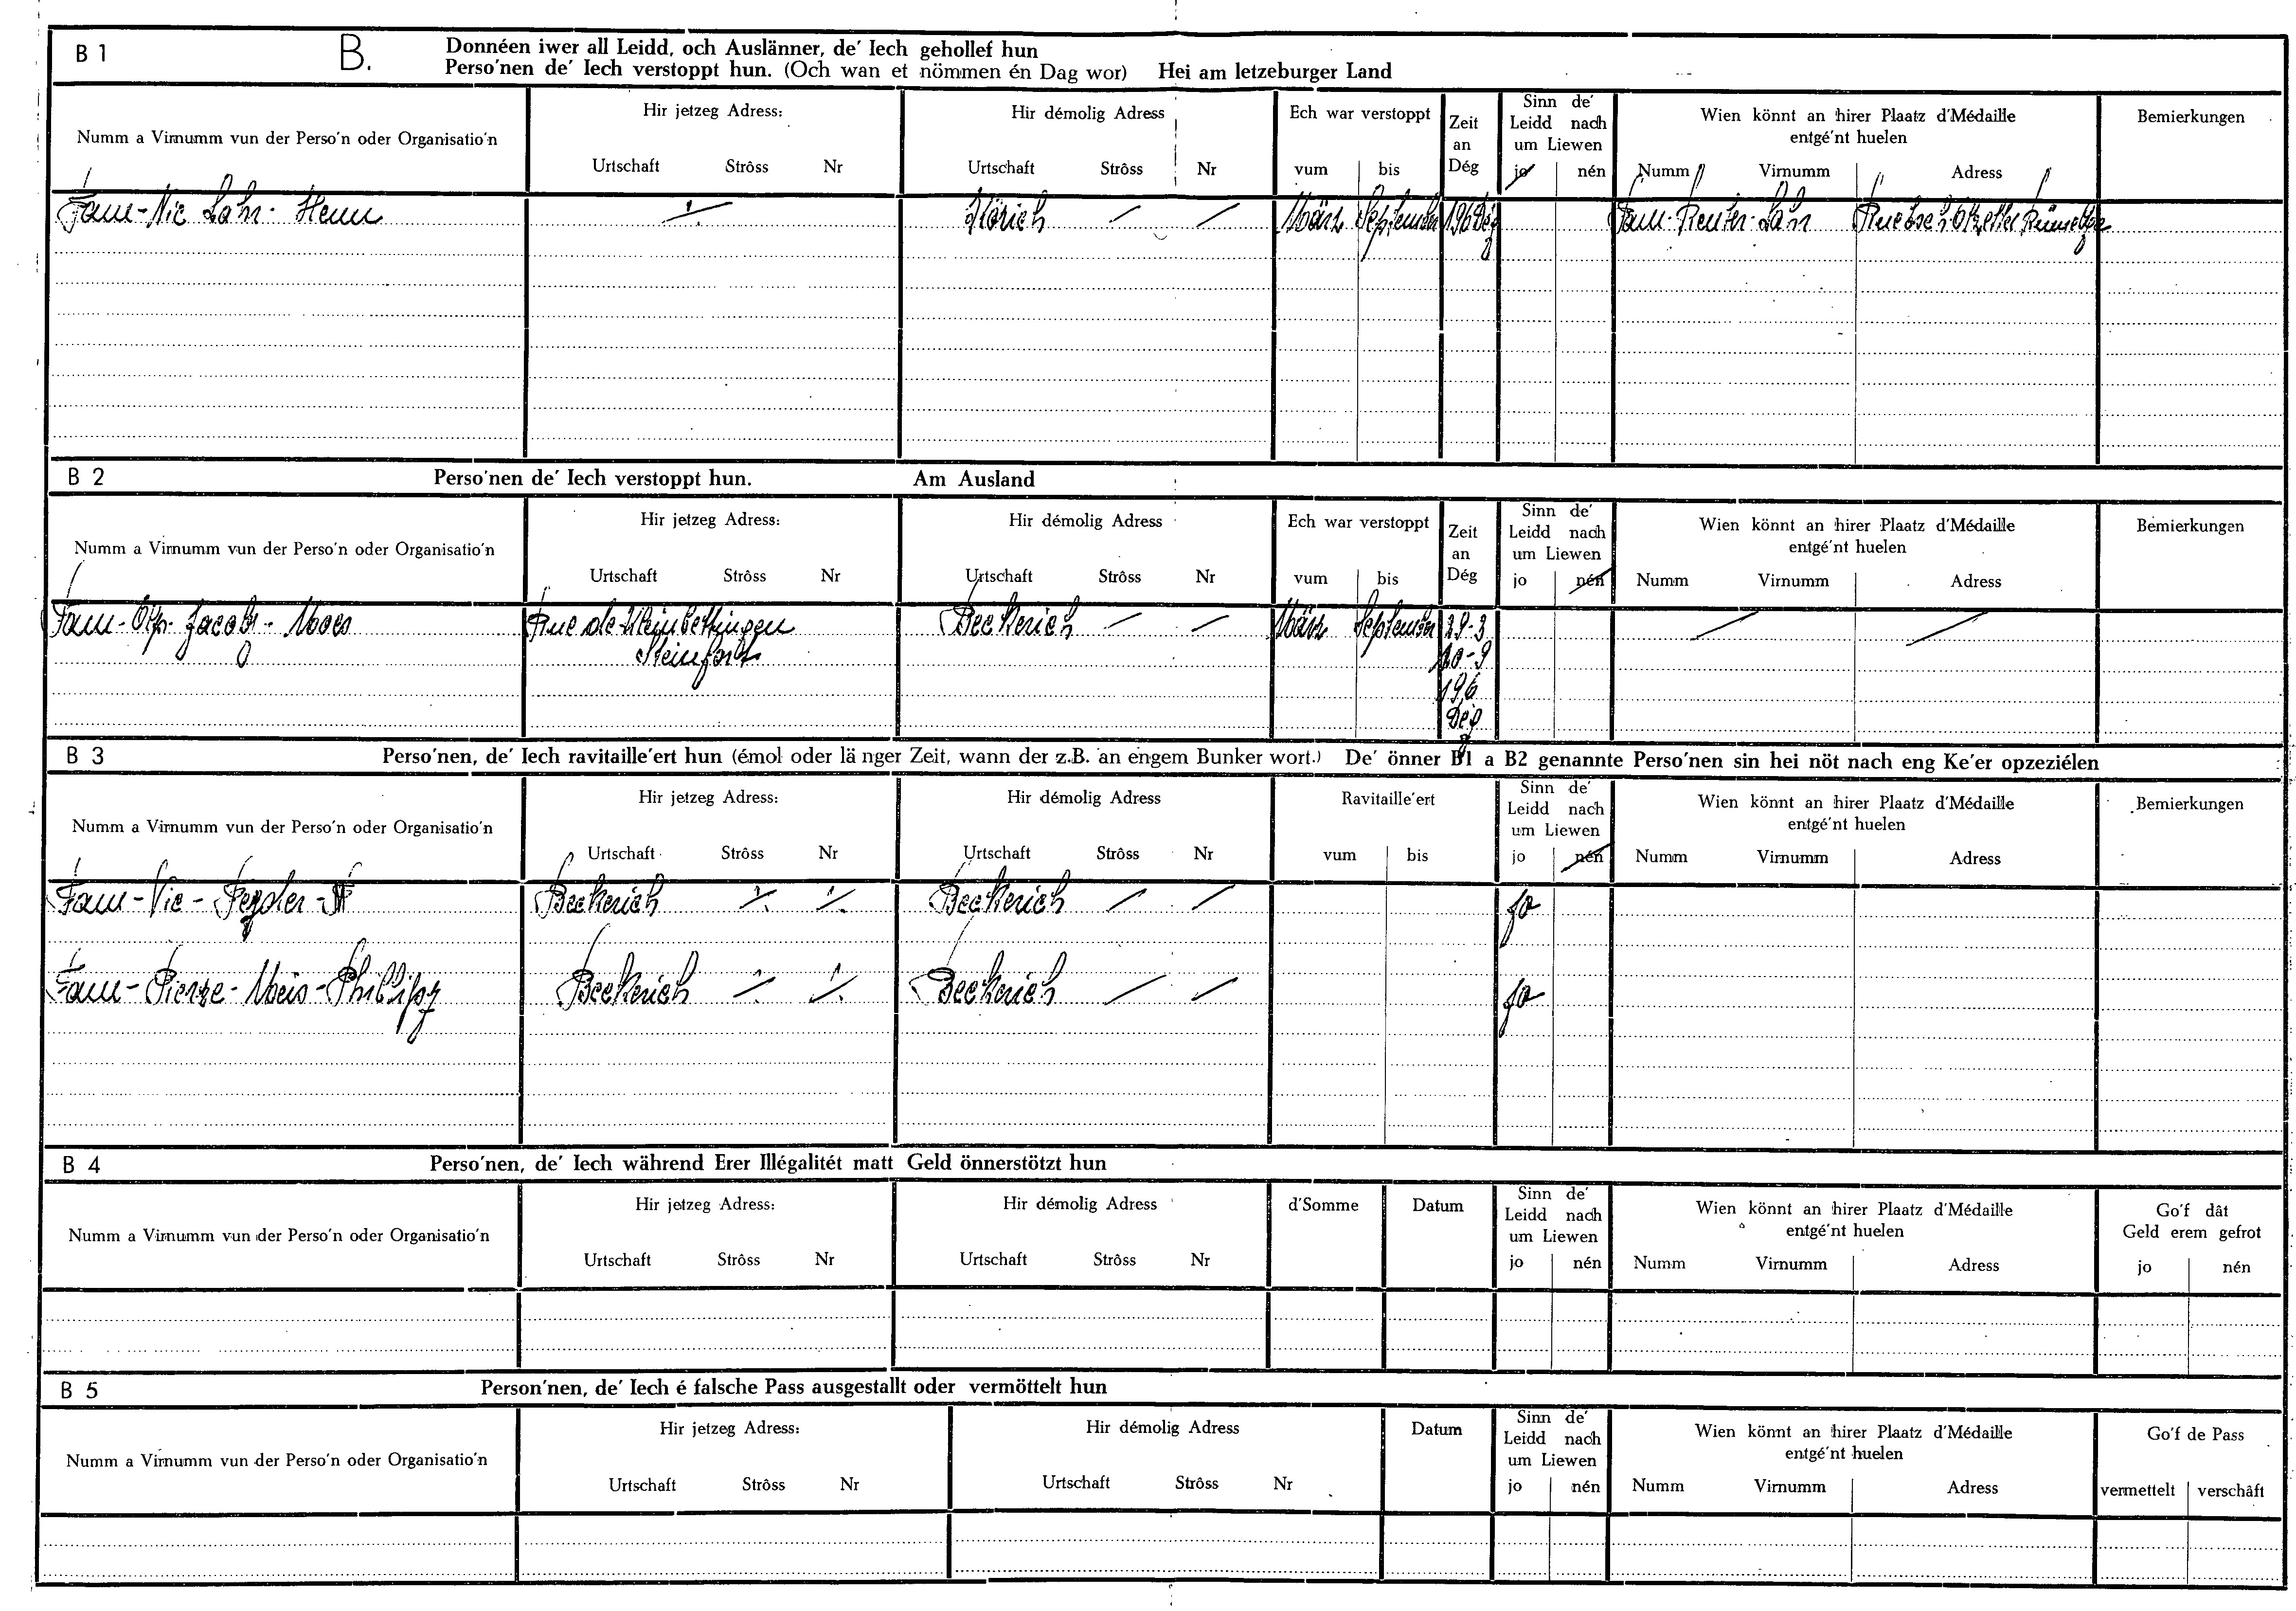 B 1 B. Donnéen iwer all Leidd, och Auslänner, de' Iech gehollef hun
Perso'nen de' Iech verstoppt hun. (Och wan et nömmen én Dag wor) Hei am letzeburger Land
Numm a Virnumm vun der Perso'n oder Organisatio'n
Hir jetzeg Adress:
Urtschaft Strôss Nr
Hir démolig Adress
Urtschaft Strôss Nr
Ech war verstoppt
vum bis
Zeit
an
Dég
Sinn de'
Leidd nach
um Liewen
jo nén
Wien könnt an hirer Plaatz d'Médaille
entgé'nt huelen
Numm Virnumm Adresse
Bemierkungen
Fam-Nic Lahr- Henn Körich März September 196 Dég Fam-Reuter-Lahr
B 2 Perso'nen de' Iech verstoppt hun. Am Ausland
Numm a Virnumm vun der Perso'n oder Organisatio'n
Hir jetzeg Adress:
Urtschaft Strôss Nr
Hir démolig Adress
Urtschaft Strôss Nr
Ech war verstoppt
vum bis
Zeit
an
Dég
Sinn de'
Leidd nach
um Liewen
jo nén
Wien könnt an hirer Plaatz d'Médaille
entgé'nt huelen
Numm Virnumm Adress
Bemierkungen
Fam- Jacoby- Rue de Kleinbettingen Beckerich März September 29-3
Steinfort 10-9
196
Dég
B 3 Perso'nen, de' Iech ravitaille'ert hun (émol oder länger Zeit, wann der z.B. an engem Bunker wort.) De' önner B1 a B2 genannte Perso'nen sin hei nöt nach eng Ke'er opzeziélen
Numm a Virnumm vun der Perso'n oder Organisatio'n
Hir jetzeg Adress:
Urtschaft Strôss Nr
Hir démolig Adress
Urtschaft Strôss Nr
Ravitaille'ert
vum bis
Sinn de'
Leidd nach
um Liewen
jo nén
Wien könnt an hirer Plaatz d'Médaille
entgé'nt huelen
Numm Virnumm Adress
Bemierkungen
Fam-Vic- Beckerich Beckerich jo
Fam-Pierre-Meis-Philippy Beckerich Beckerich jo
B 4 Perso'nen, de' Iech während Erer Illégalitét matt Geld önnerstötzt hun
Numm a Virnumm vun der Perso'n oder Organisatio'n
Hir jetzeg Adress:
Urtschaft Strôss Nr
Hir démolig Adress
Urtschaft Strôss Nr
d'Somme
Datum
Sinn de'
Leidd nach
um Liewen
jo nén
Wien könnt an hirer Plaatz d'Médaille
entgé'nt huelen
Numm Virnumm Adress
Go'f dât
Geld erem gefrot
jo nén
B 5 Person'nen, de' Iech é falsche Pass ausgestallt oder vermöttelt hun
Numm a Virnumm vun der Perso'n oder Organisatio'n
Hir jetzeg Adress:
Urtschaft Strôss Nr
Hir démolig Adress
Urtschaft Strôss Nr
Datum
Sinn de'
Leidd nach
um Liewen
jo nén
Wien könnt an hirer Plaatz d'Médaille
entgé'nt huelen
Numm Virnumm Adress
Go'f de Pass
vermettelt verschâft